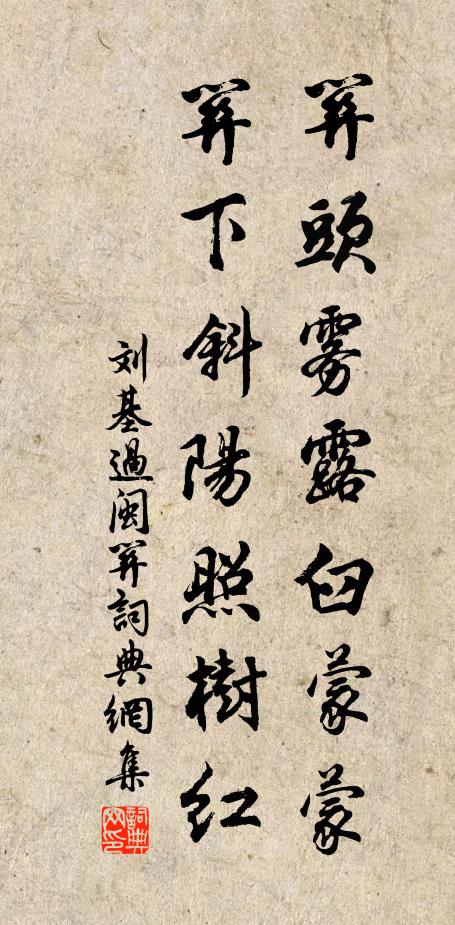 關頭雾露白蒙蒙
關下斜陽照樹紅
刘基過閩關詞典網集
詞典
网印